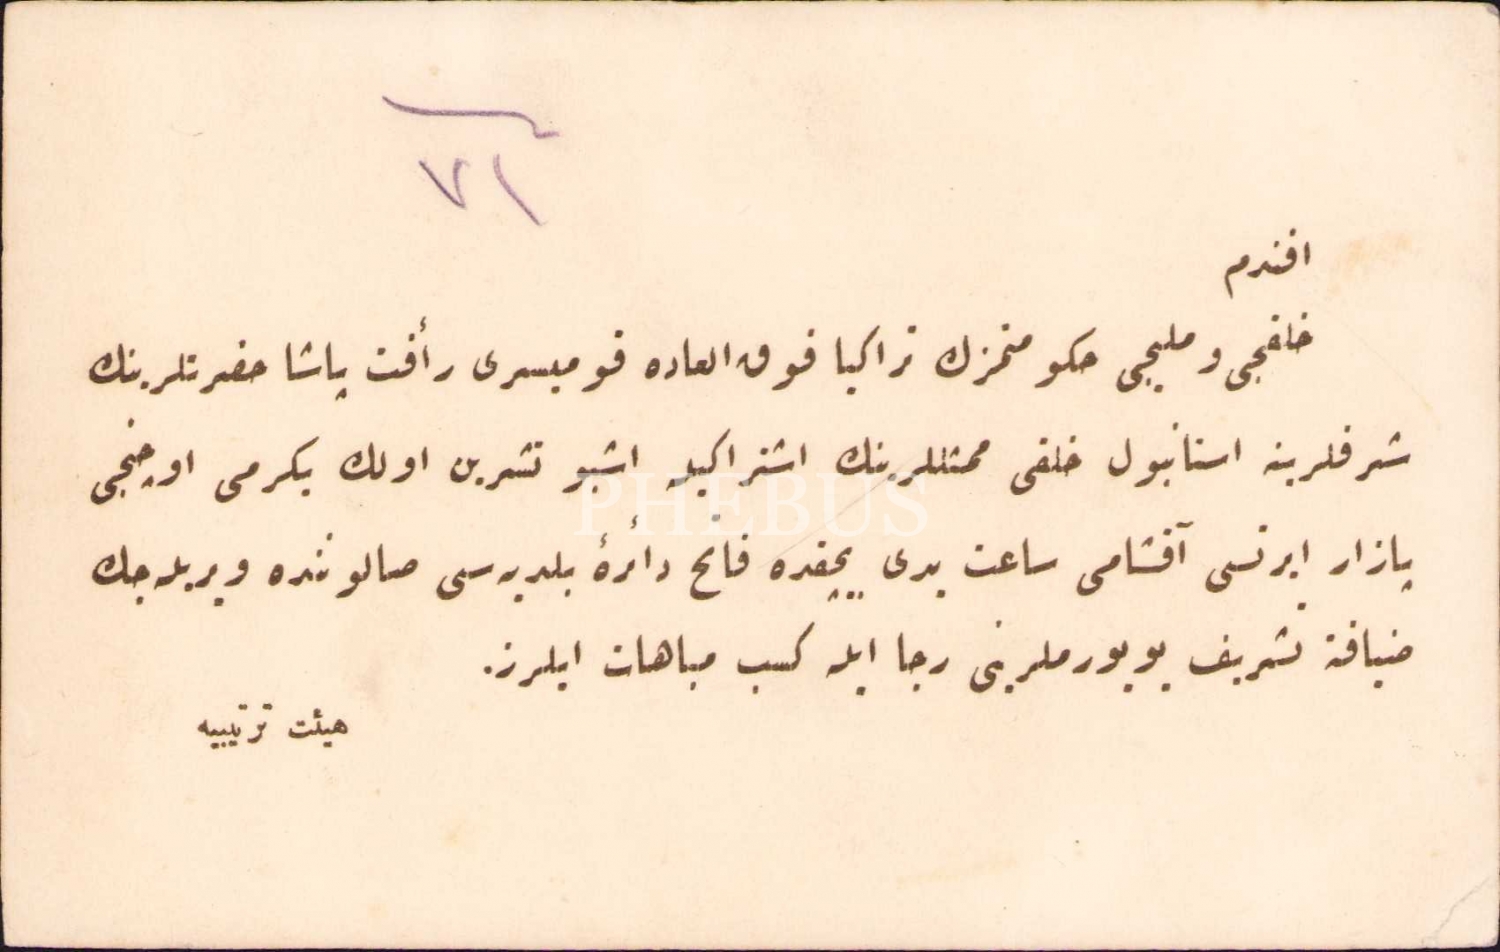 ٧١
افندم
خلقجی و ملیجی حكومتمزك تراكیا فوق العاده قومیسری رأفت پاشا حضرتلرینك
شرفلرینه استانبول خلقی ممثللرینك اشتراكیله اشبو تشرین اولك یكرمی اوچنجی
پازار ایرتسی آقشامی ساعت یدی بچقده فاتح دائرهٔ بلدیه سی صالوننده ویریله جك
ضیافته تشریف بویورملرینی رجا ایله كسب مباهات ایلرز.
هیئت ترتیبیه
PHEBUS